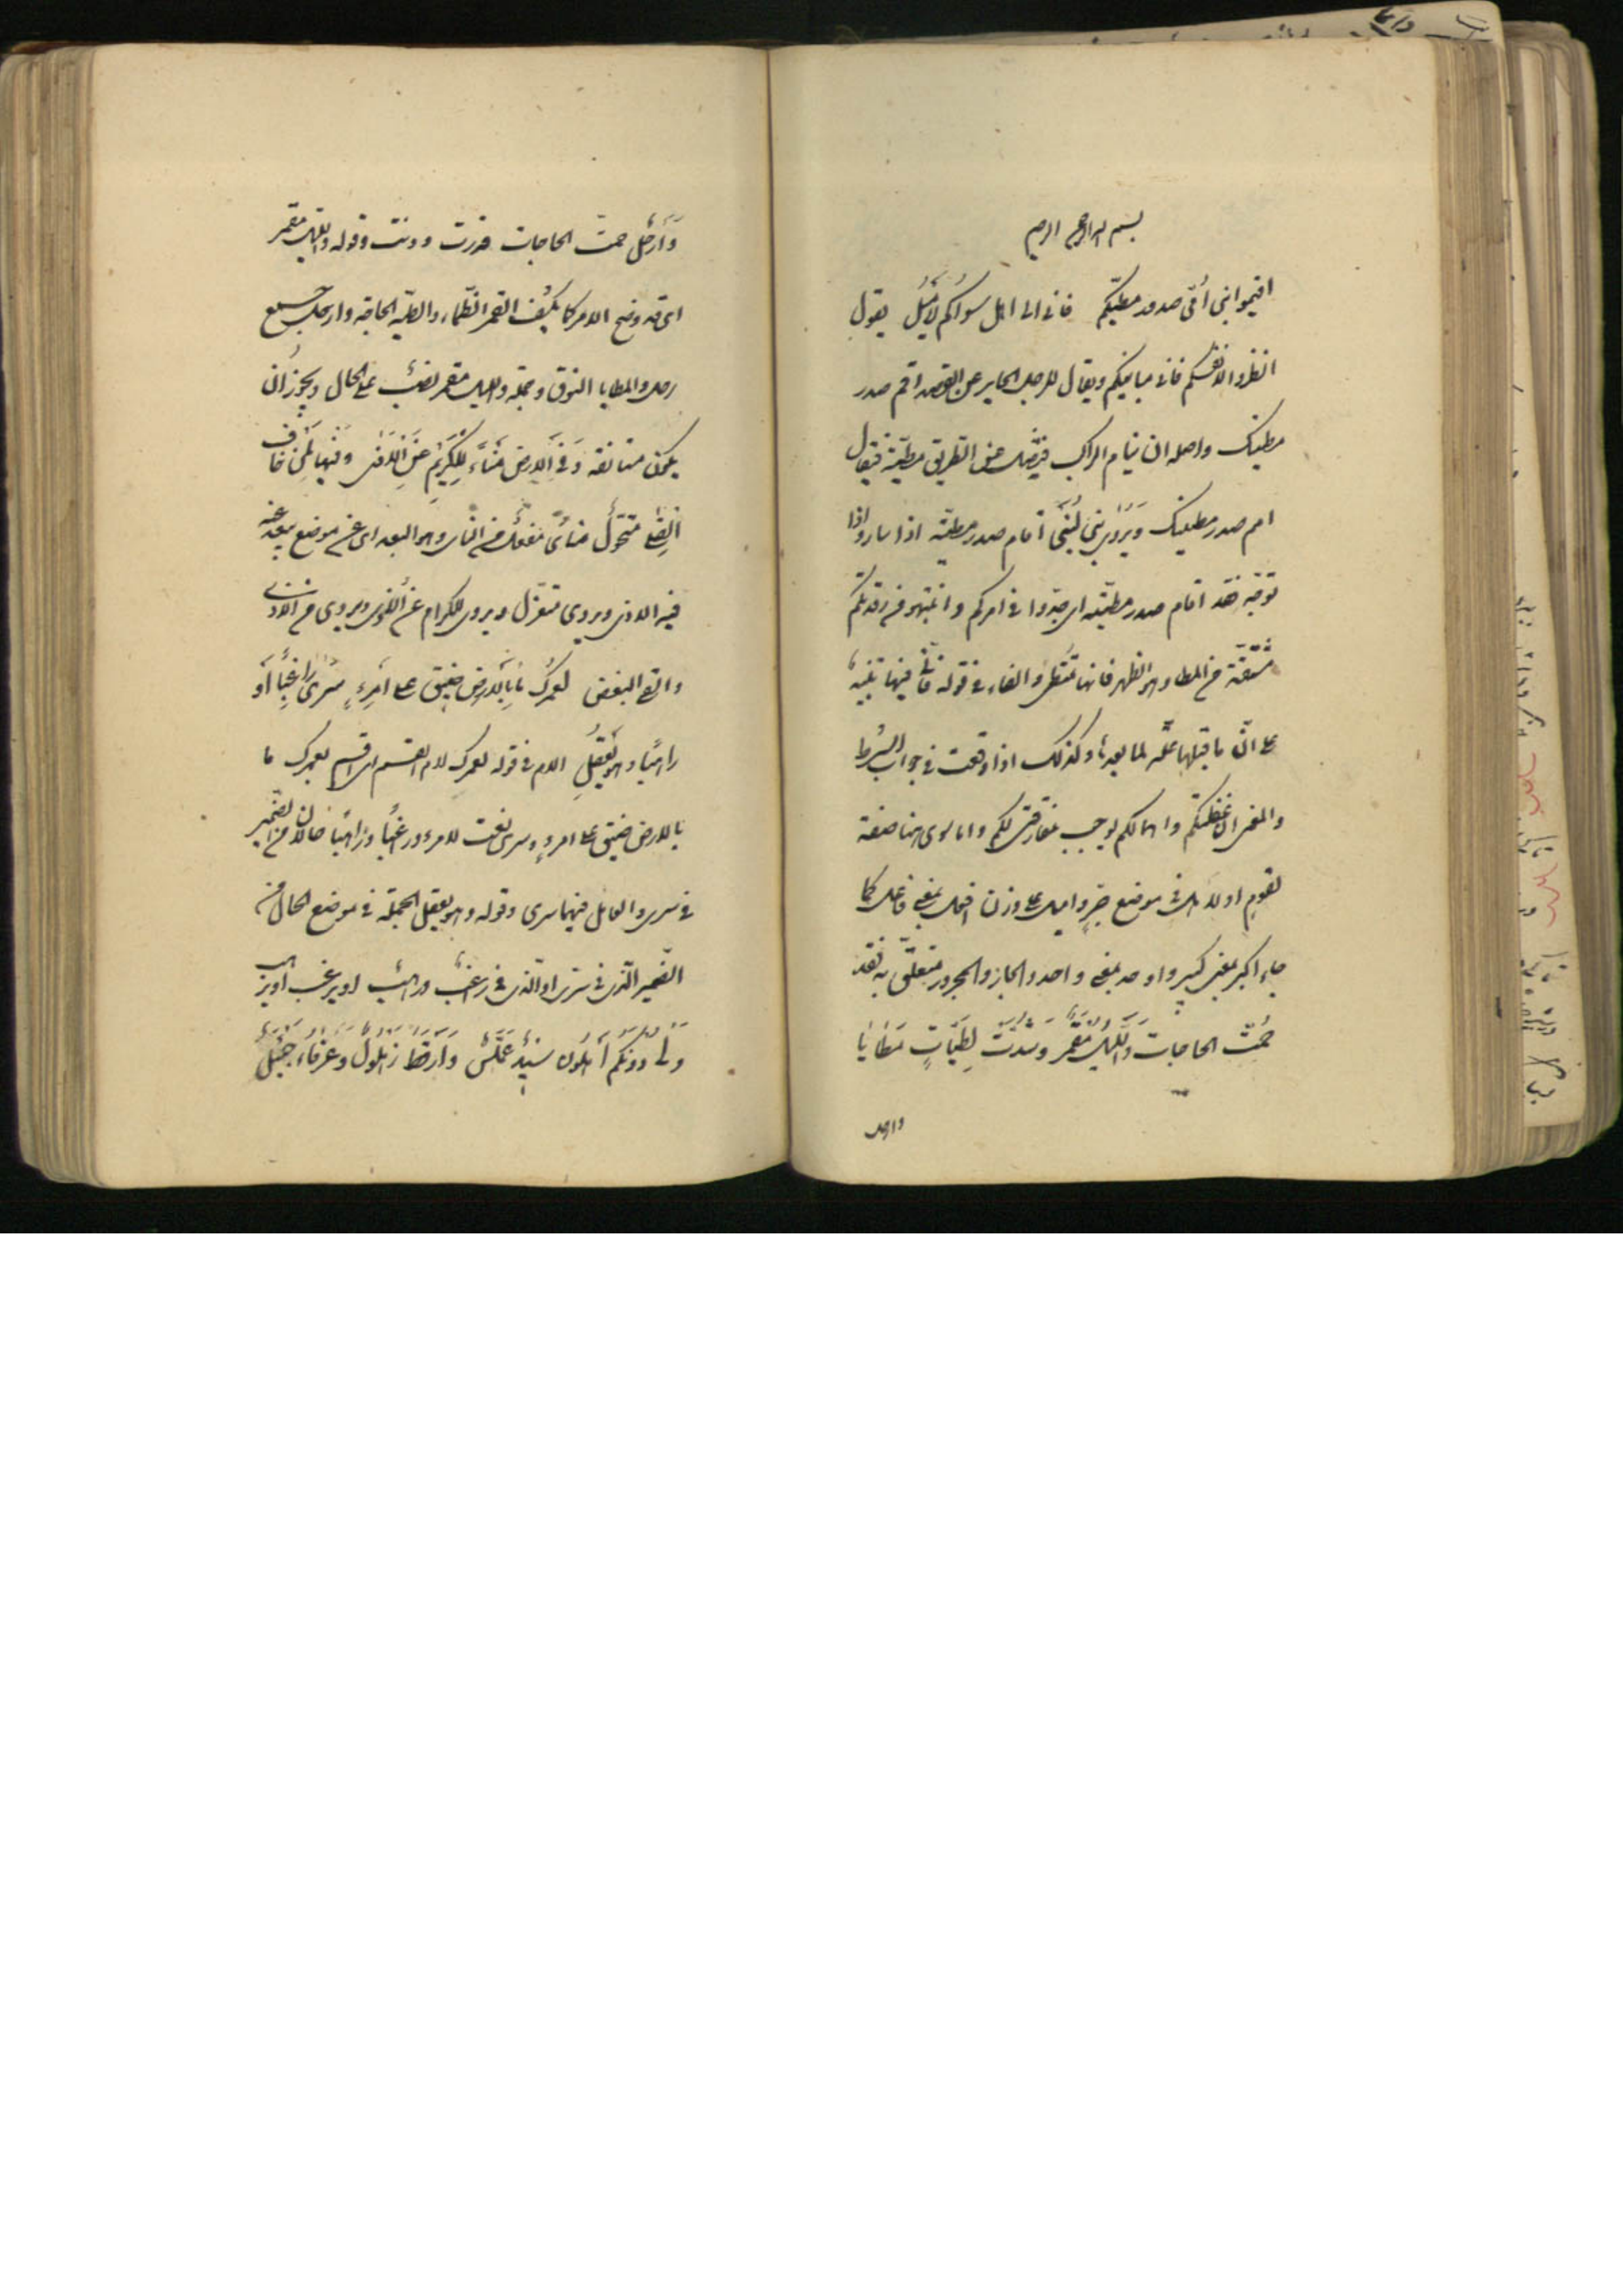 بسم الله الرحمن الرحيم
اقيموا بنى أمّى صدور مطيّكم فانى الى اهل سواكم لأميل يقول
انظروا لانفسكم فانى مباينكم ويقال للرجل الجاير عن القصد اقم صدر
مطيتك واصله ان ينام الراكب فيضل عن الطريق مطيّته فيقال
اقم صدر مطيتك ويروى بنى لبنى اقام صدر مطيّته اذا سار واذا
توجه فقد اقام صدر مطيّته اى جدّوا فى امركم وانتبهو من رقدتكم
مشتقة من المطا وهو الظهر فانها تمتطى والفاء فى قوله فانى فيها تنبيه
على انّ ما قبلها علّة لما بعدها وكذلك اذا وقعت فى جواب الشرط
والمعنى ان غفلتكم واهمالكم يوجب مفارقتى لكم واما سوى ههنا صفة
لقوم او لاهل فى موضع جرّ واميل على وزن افعل بمعنى فاعل كما
جاء اكبر بمعنى كبير واوحد بمعنى واحد والجار والمجرور متعلّق به فقد
حُمّت الحاجات وَاللّيل مُقمر وَشُدّت لِطيّاتٍ مَطايَا
وارحل
وَأَرحُل حمت الحاجات قدرت ودنت وقوله والليل مقمر
اى قد وضح الامر كما يكشف القمر الظلماء والطيّة الحاجة وارحل جمع
رحل والمطايا النوق وجملة والليل مقمر نصب على الحال ويجوز ان
يكون مستانفة وَفى الارض مَنأًى لِلكَريم عَنِ الاذى وَفيها لمن خاف
القلى متحوّل منأى مفعل من النأى وهو البعد اى عن موضع يبعد عنه
فيه الاذى ويروى متعزل ويروى للكرام عن الاذى ويروى من الاذى
والقلى البغض لعمرك مَا بِالارض ضيق على امرِءٍ سرى راغِبًا أو
راهبًا وهو يَعقِلُ اللام فى قوله لعمرك لام القسم اى اقسم بعمرك ما
بالارض ضيق على امرءٍ وسرى نعت لامرء وراغبًا وراهبًا حالان من الضمير
فى سرى والعامل فيهما سرى وقوله وهو يعقل الجملة فى موضع الحال من
الضمير الّذى فى سرى او الّذى فى راغب وراهب او يرغب او يرهب
وَلى دُونَكم أَهلُون سيدٌ عَمَلّسٌ وَأَرقَطُ زهلول وَعرفَاء جَيئَلُ